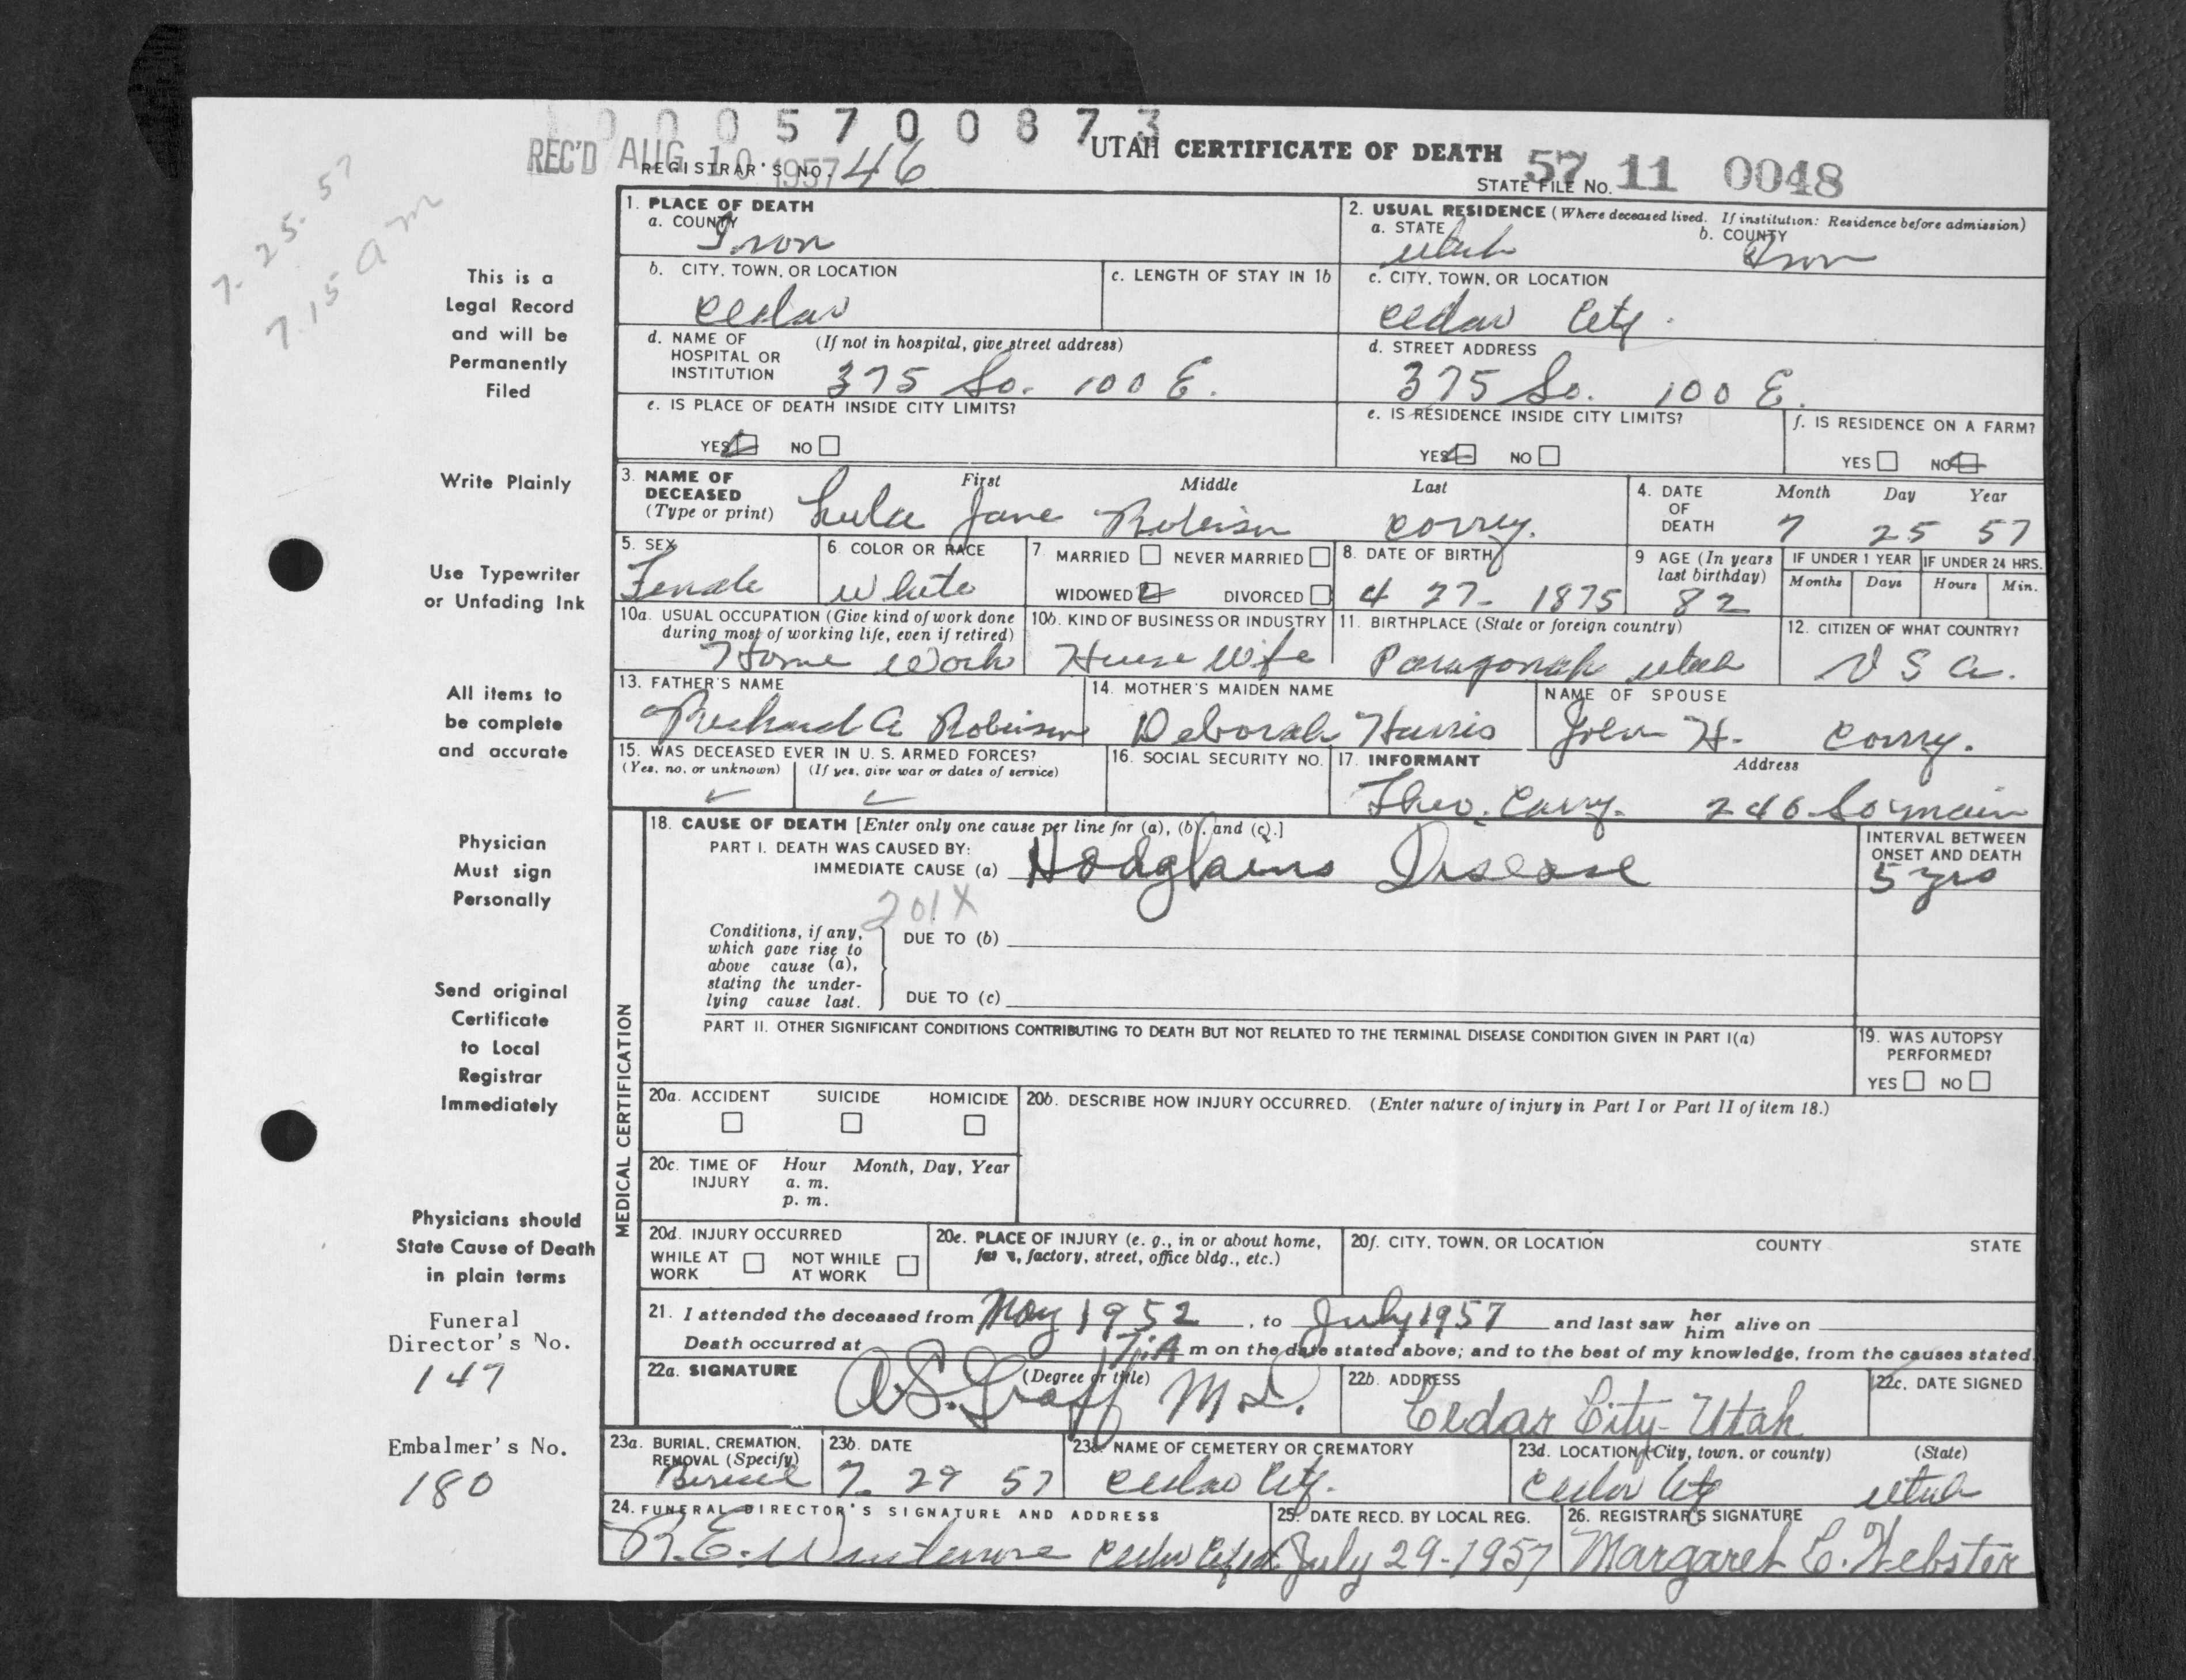 1000 5 7 0 0 8 7 3
REC'D AUG 10 1957
UTAH CERTIFICATE OF DEATH
REGISTRAR'S NO. 46
STATE FILE NO. 57 11 0048
7. 25. 57
7.15 am
This is a
Legal Record
and will be
Permanently
Filed
Write Plainly
Use Typewriter
or Unfading Ink
All items to
be complete
and accurate
Physician
Must sign
Personally
Send original
Certificate
to Local
Registrar
Immediately
Physicians should
State Cause of Death
in plain terms
Funeral
Director's No.
147
Embalmer's No.
180
1. PLACE OF DEATH
a. COUNTY
Iron
2. USUAL RESIDENCE (Where deceased lived. If institution: Residence before admission)
a. STATE Utah b. COUNTY Iron
b. CITY, TOWN, OR LOCATION
Cedar
c. LENGTH OF STAY IN 1b
c. CITY, TOWN, OR LOCATION
Cedar City.
d. NAME OF HOSPITAL OR INSTITUTION (If not in hospital, give street address)
375 So. 100 E.
d. STREET ADDRESS
375 So. 100 E.
e. IS PLACE OF DEATH INSIDE CITY LIMITS?
YES NO
e. IS RESIDENCE INSIDE CITY LIMITS?
YES NO
f. IS RESIDENCE ON A FARM?
YES NO
3. NAME OF DECEASED (Type or print) First Middle Last
Lula Jane Robinson Corry.
4. DATE OF DEATH Month Day Year
7 25 57
5. SEX
Female
6. COLOR OR RACE
White
7. MARRIED NEVER MARRIED
WIDOWED DIVORCED
8. DATE OF BIRTH
4 27- 1875
9 AGE (In years last birthday)
82
IF UNDER 1 YEAR IF UNDER 24 HRS.
Months Days Hours Min.
10a. USUAL OCCUPATION (Give kind of work done during most of working life, even if retired)
Home Work
10b. KIND OF BUSINESS OR INDUSTRY
House Wife
11. BIRTHPLACE (State or foreign country)
Paragonah Utah
12. CITIZEN OF WHAT COUNTRY?
U S a.
13. FATHER'S NAME
Richard A Robinson
14. MOTHER'S MAIDEN NAME
Deborah Harris
NAME OF SPOUSE
John H. Corry.
15. WAS DECEASED EVER IN U. S. ARMED FORCES?
(Yes, no, or unknown) (If yes, give war or dates of service)
16. SOCIAL SECURITY NO.
17. INFORMANT Address
Theo. Corry. 246 So main
18. CAUSE OF DEATH [Enter only one cause per line for (a), (b), and (c).]
PART I. DEATH WAS CAUSED BY:
IMMEDIATE CAUSE (a) Hodgkins Disease
INTERVAL BETWEEN ONSET AND DEATH
5 yrs
201X
Conditions, if any, which gave rise to above cause (a), stating the underlying cause last.
DUE TO (b)
DUE TO (c)
PART II. OTHER SIGNIFICANT CONDITIONS CONTRIBUTING TO DEATH BUT NOT RELATED TO THE TERMINAL DISEASE CONDITION GIVEN IN PART I(a)
19. WAS AUTOPSY PERFORMED?
YES NO
MEDICAL CERTIFICATION
20a. ACCIDENT SUICIDE HOMICIDE
20b. DESCRIBE HOW INJURY OCCURRED. (Enter nature of injury in Part I or Part II of item 18.)
20c. TIME OF INJURY Hour Month, Day, Year
a. m.
p. m.
20d. INJURY OCCURRED
WHILE AT WORK NOT WHILE AT WORK
20e. PLACE OF INJURY (e. g., in or about home, farm, factory, street, office bldg., etc.)
20f. CITY, TOWN, OR LOCATION COUNTY STATE
21. I attended the deceased from May 1952, to July 1957 and last saw her him alive on
Death occurred at m on the date stated above; and to the best of my knowledge, from the causes stated.
22a. SIGNATURE (Degree or title)
A.S. Graff M.D.
22b. ADDRESS
Cedar City- Utah
22c. DATE SIGNED
23a. BURIAL, CREMATION, REMOVAL (Specify)
Buriel
23b. DATE
7. 29 57
23c. NAME OF CEMETERY OR CREMATORY
Cedar City.
23d. LOCATION (City, town, or county) (State)
Cedar City Utah
24. FUNERAL DIRECTOR'S SIGNATURE AND ADDRESS
R.E. Cedar City
25. DATE RECD. BY LOCAL REG.
July 29-1957
26. REGISTRAR'S SIGNATURE
Margaret C. Webster